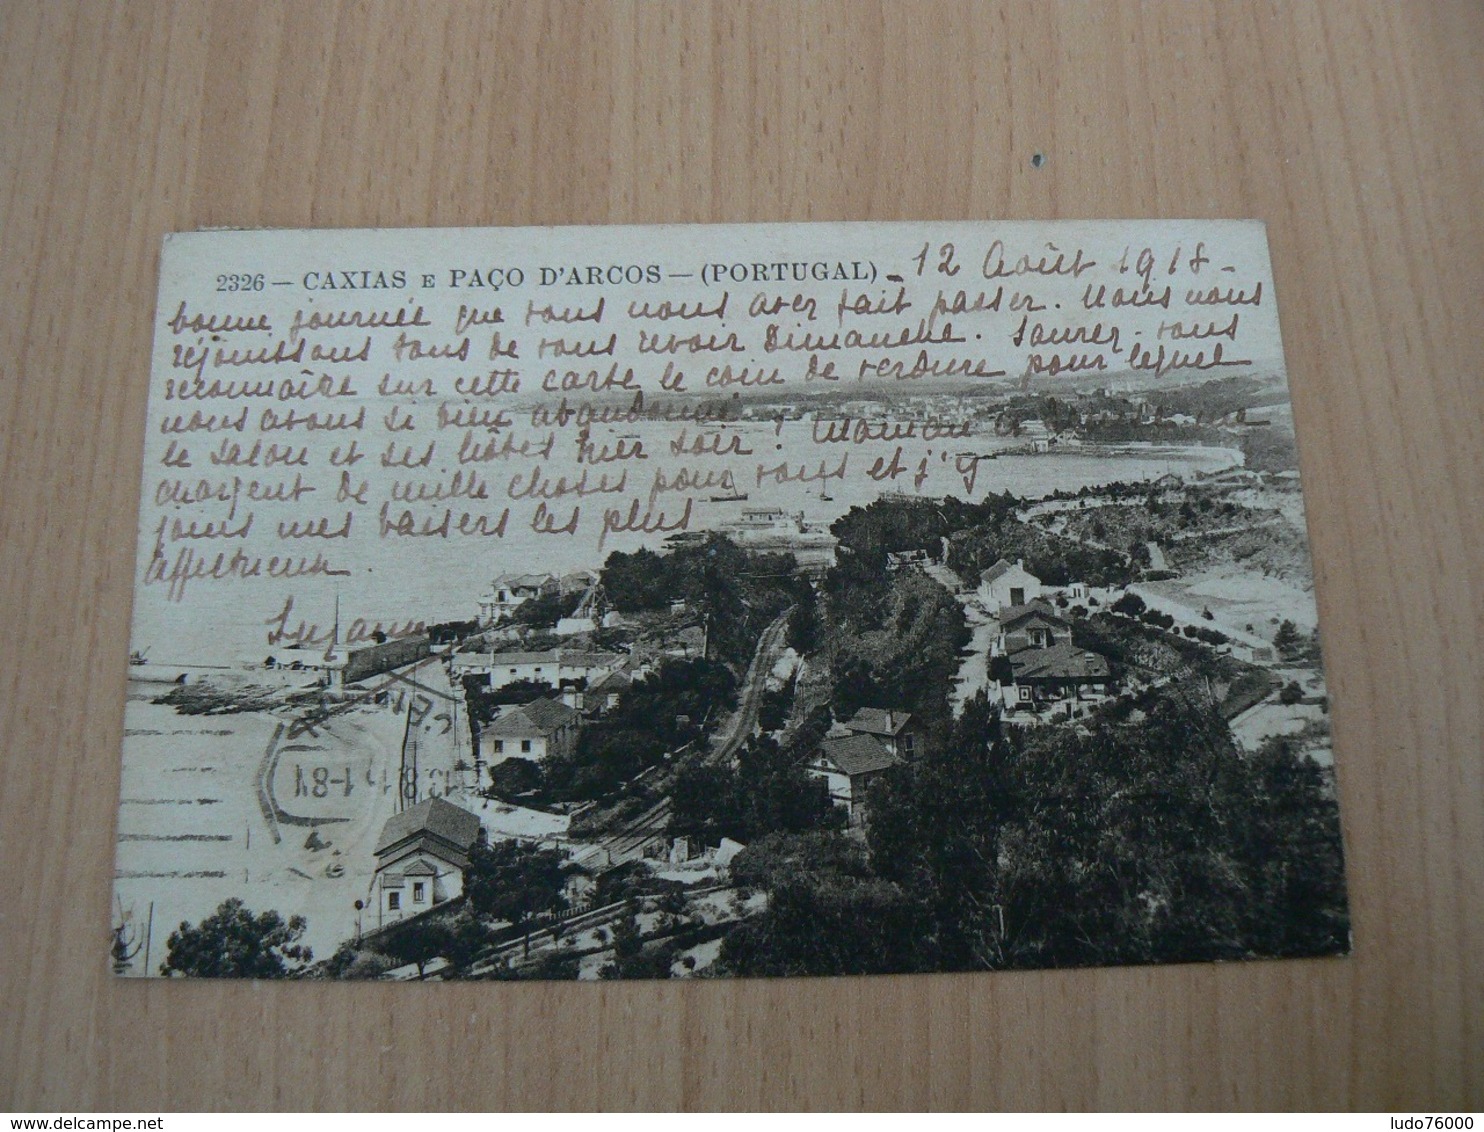 2326 — CAXIAS E PAÇO D'ARCOS — (PORTUGAL) - 12 Août 1918 -
bonne journée que vous nous avez fait passer. Nous nous
réjouissons tous de vous revoir Dimanche. Saurez-vous
reconnaître sur cette carte le coin de verdure pour lequel
nous avons si bien abandonné
le salon et ses hôtes hier soir ! Maman
chargent de mille choses pour vous et j'y
joins mes baisers les plus
affectueux.
Suzanne
CEN
www.delcampe.net
ludo76000